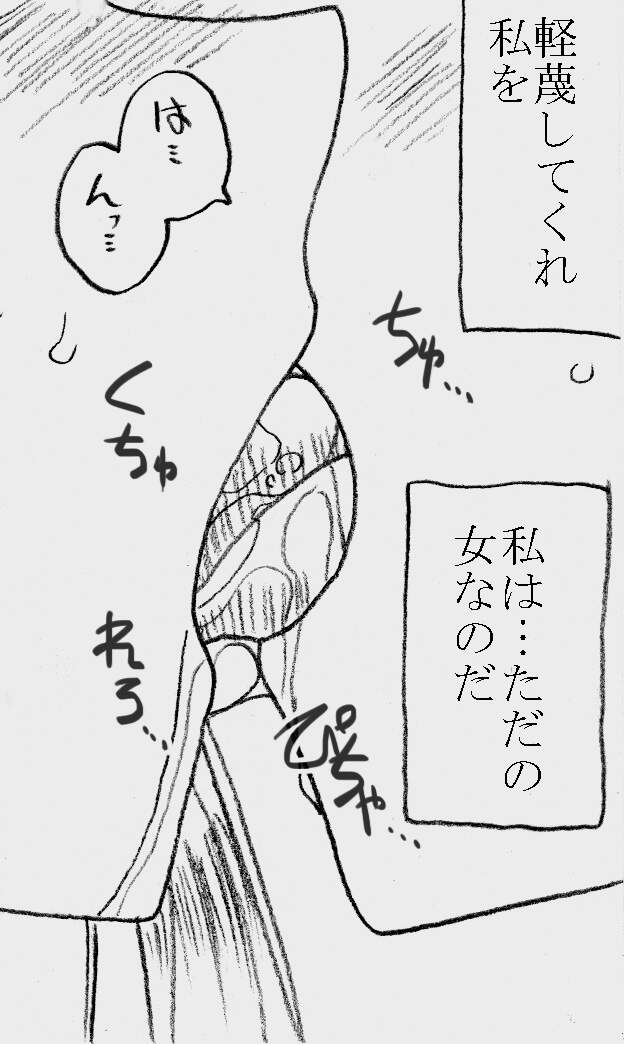 軽蔑してくれ
私を
は…
んっ…
ちゅ…
くちゅ
私は…ただの
女なのだ
れろ…
ぴちゃ…